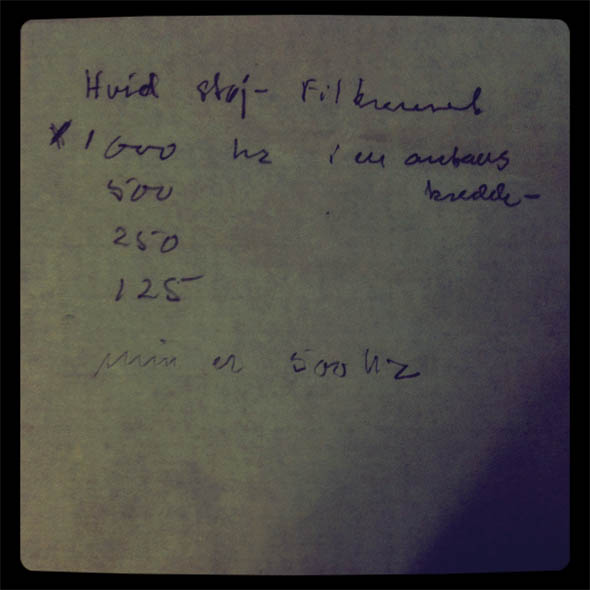 Hvid støj-
1000 hz i en oktavs
500 bredde-
250
125
min er 500 hz